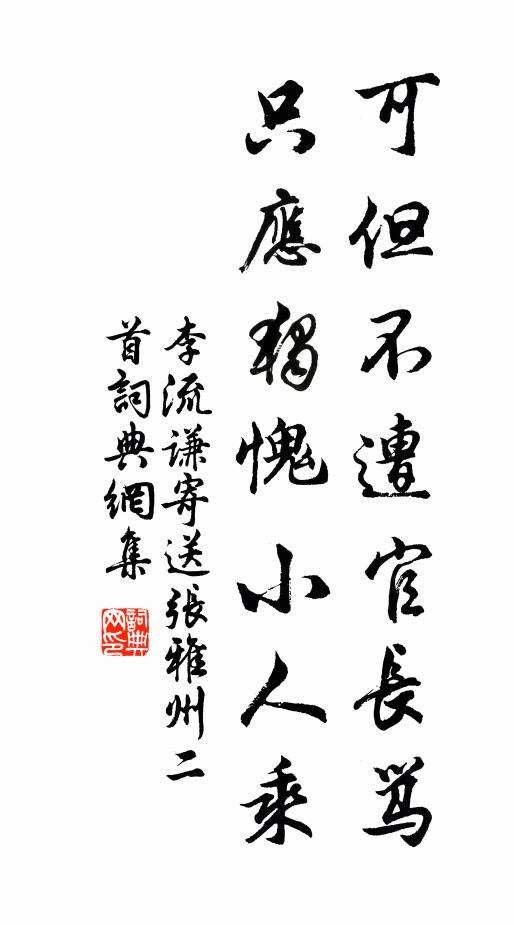 可但不遭官長骂
只應獨愧小人乘
李流谦寄送張雅州二
首詞典網集
詞典
网印